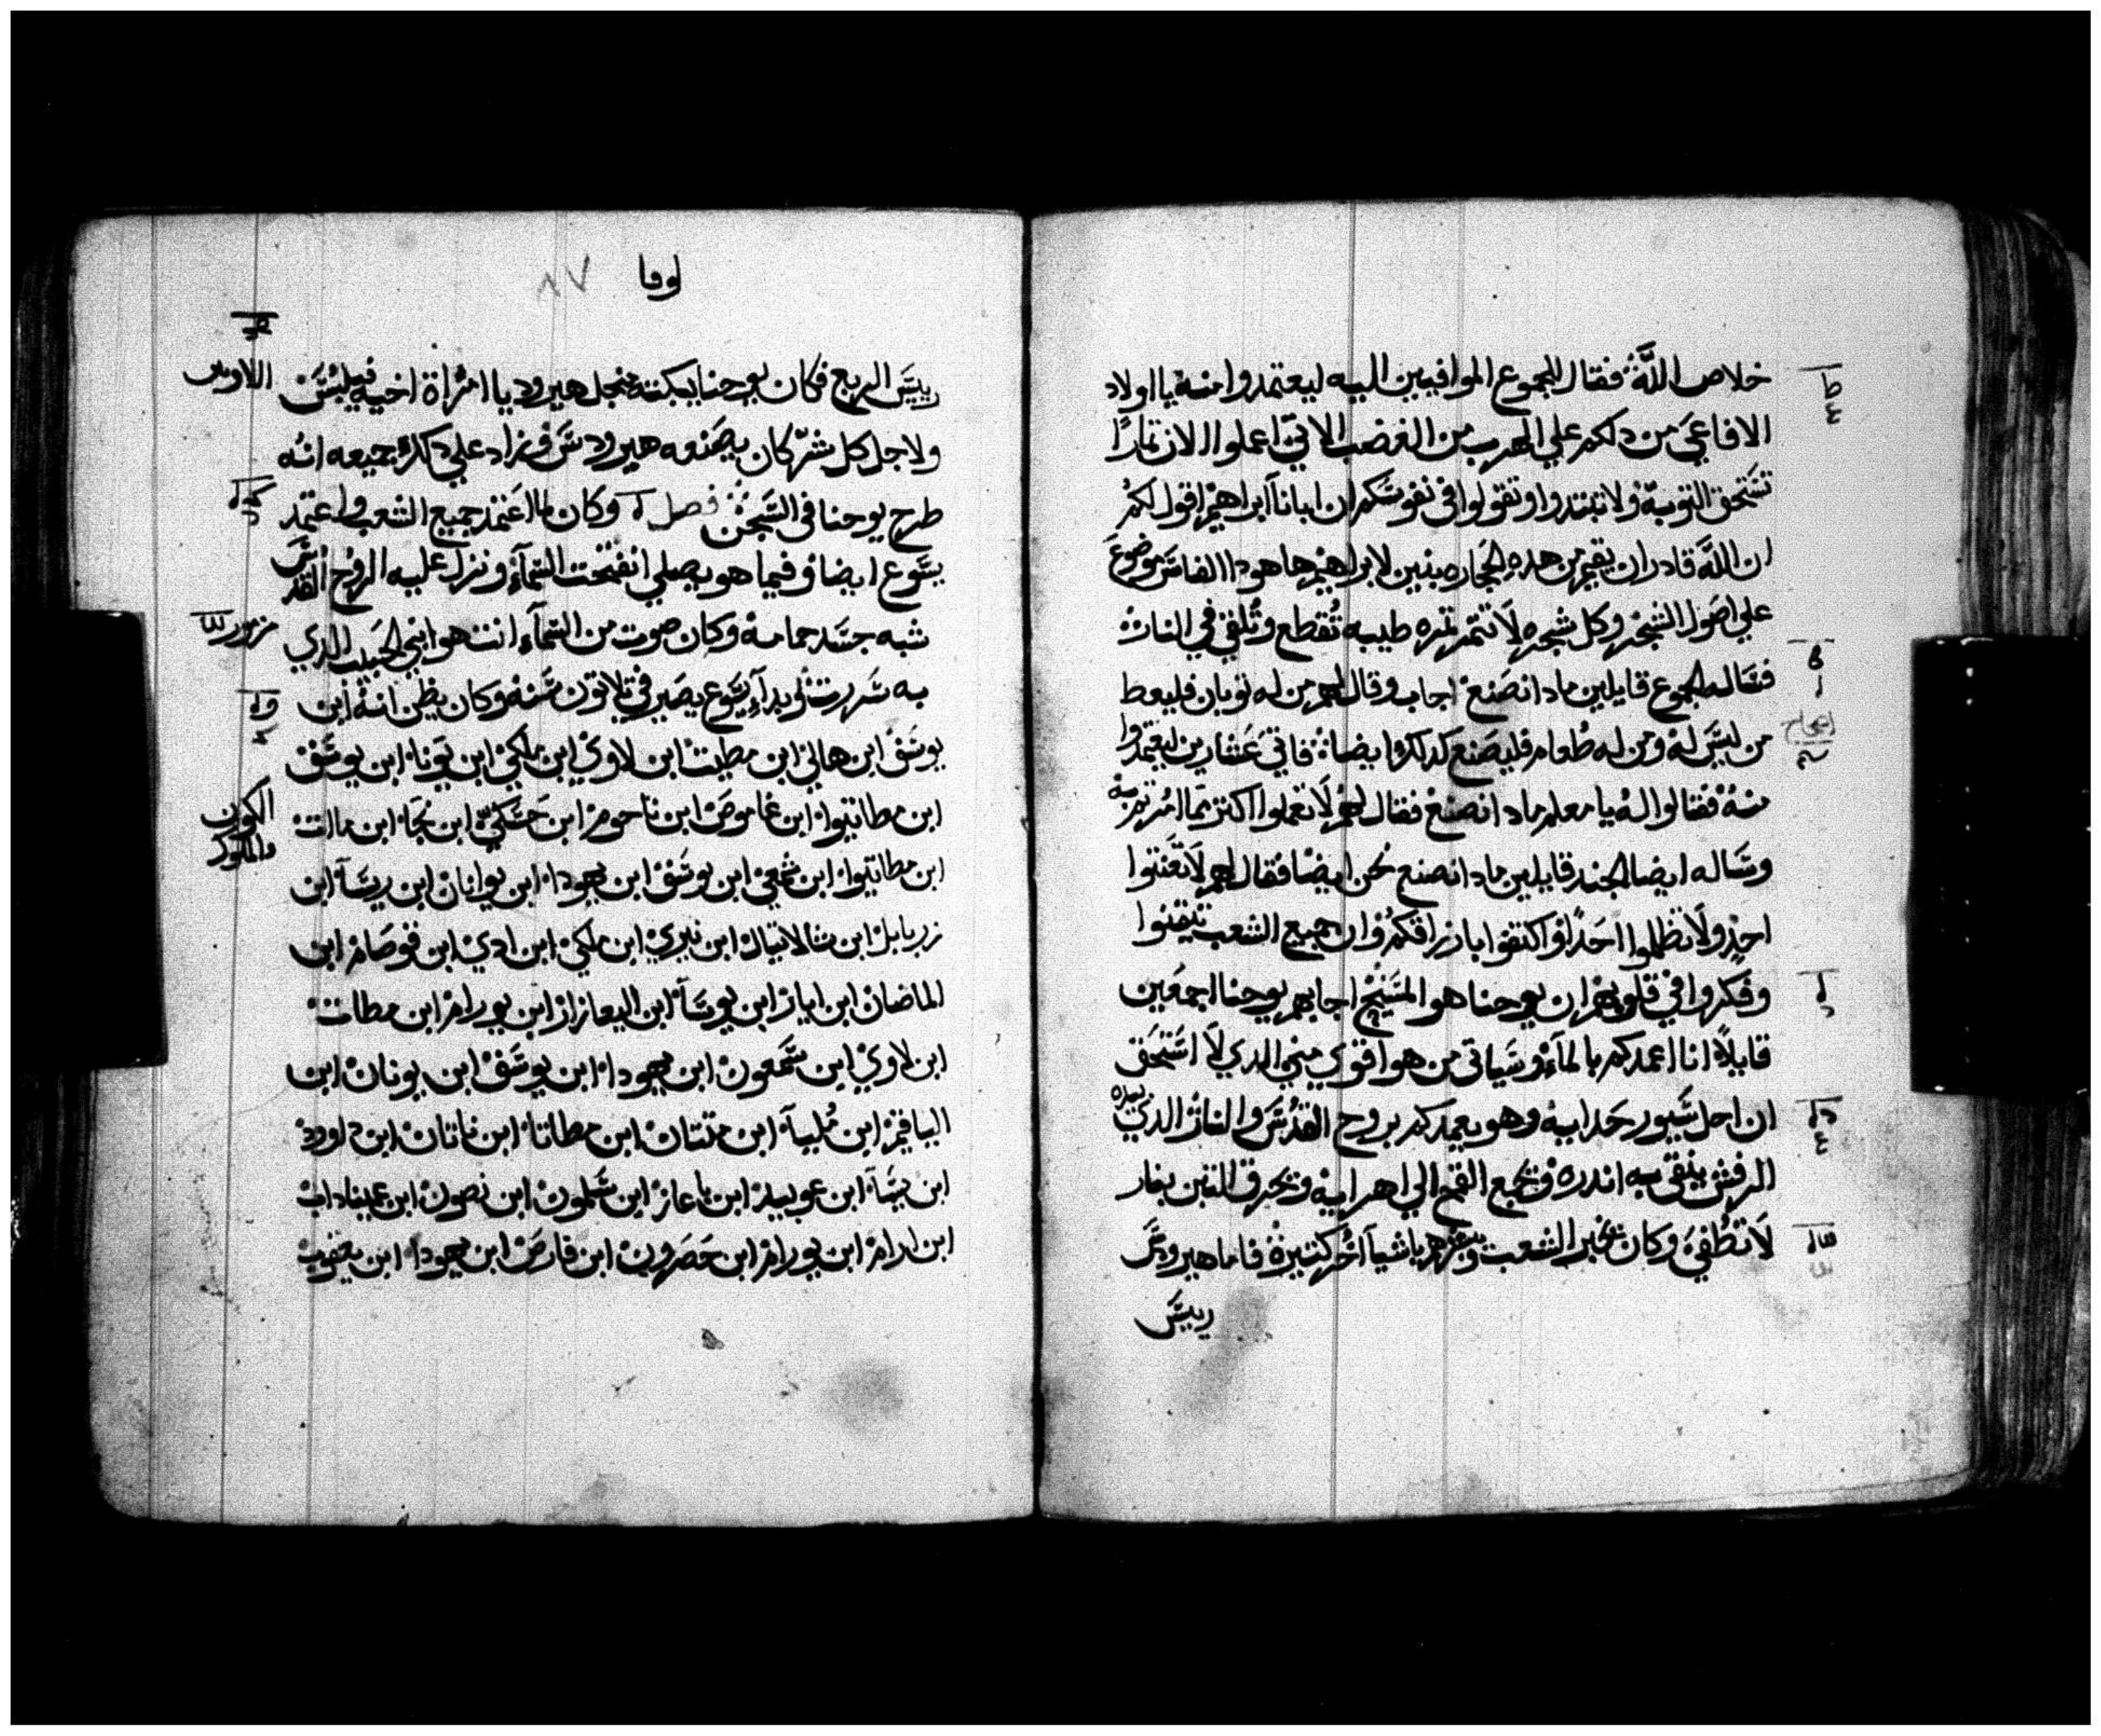 خلاص اللَّه فقال للجموع الموافيين اليه ليعتمدوا منه يا اولاد
الافاعي من دلكم علي الهرب من الغضب الاتي اعملوا الان تمارًا
تستحق التوبة ولا تبتدوا وتقولوا في نفوسكم ان ابانا ابراهيم اقول لكم
ان اللَّه قادر ان يقيم من هده الحجاره بنين لابراهيم ها هودا الفاس موضوع
علي اصول الشجر وكل شجره لا تتمر تمره طيبه تُقطع وتُلقي في النار
فسَاله الجموع قايلين مادا نصنع اجاب وقال لهم من له توبان فليعط
من ليس له ومن له طعام فليصنع كدلك ايضا فاتي عشارين ليعتمدوا
منه فقالوا له يا معلم مادا نصنع فقال لهم لا تعملوا اكتر مما امرتم به
وساله ايضا الجند قايلين مادا نصنع نحن ايضا فقال لهم لا تعنتوا
احدٍ ولا تظلموا احدًا واكتفوا بارزاقكم وان جميع الشعب تيقنوا
وفكروا في قلوبهم ان يوحنا هو المسيح اجابهم يوحنا اجمعين
قايلاً انا اعمدكم بالمآء وسياتي من هو اقوي مني الدي لا استحق
ان احل سيور حدايه وهو يعمدكم بروح القدس والنار الدي بيده
الرفش ينقي به اندره ويجمع القمح الي اهرايه ويحرق التبن بنار
لا تطُفي وكان يخبر الشعب ويعزيهم باشيآ اُخر كتيرة فاما هيرودس
رييس
لوقا
٨٧
رييس الربع فكان يوحنا يبكته من اجل هيروديا امراة اخيه فيلبس
الاوس
ولاجل كل شر كان يصنعه هيرودس وزاد علي دلك جميعه انه
طرح يوحنا في السجن فصل وكان لما اعتمد جميع الشعب واعتمد
يسوع ايضا وفيما هو يصلي انفتحت السمآء ونزل عليه الروح القدس
شبه جسد حمامة وكان صوت من السمآء انت هو ابني الحبيب الدي
مزمور
به سررت وبدآ يسوع يصير في تلاتون سنه وكان يظن انه ابن
يوسف ابن هالي ابن مطيت ابن لاوي ابن ملكي ابن يونا ابن يوسف
ابن مطاتيوا ابن عاموص ابن ناحوم ابن حسلي ابن نجا ابن مات
الكون
والملوك
ابن مطاتيوا ابن شمعي ابن يوسف ابن يهودا ابن يوانان ابن ريسا ابن
زربابل ابن شالاتيال ابن نيري ابن ملكي ابن ادي ابن قوصام ابن
الماضان ابن اياز ابن يوسا ابن اليعازاز ابن يورام ابن مطات
ابن لاوي ابن سمعون ابن يهودا ابن يوسف ابن يونان ابن
الياقيم ابن مُليا ابن متنان ابن مطاتا ابن ناتان ابن داوود
ابن يسا ابن عوبيد ابن باعاز ابن سلمون ابن نصون ابن عميناداب
ابن ارام ابن يورام ابن حصرون ابن فارص ابن يهودا ابن يعقوب